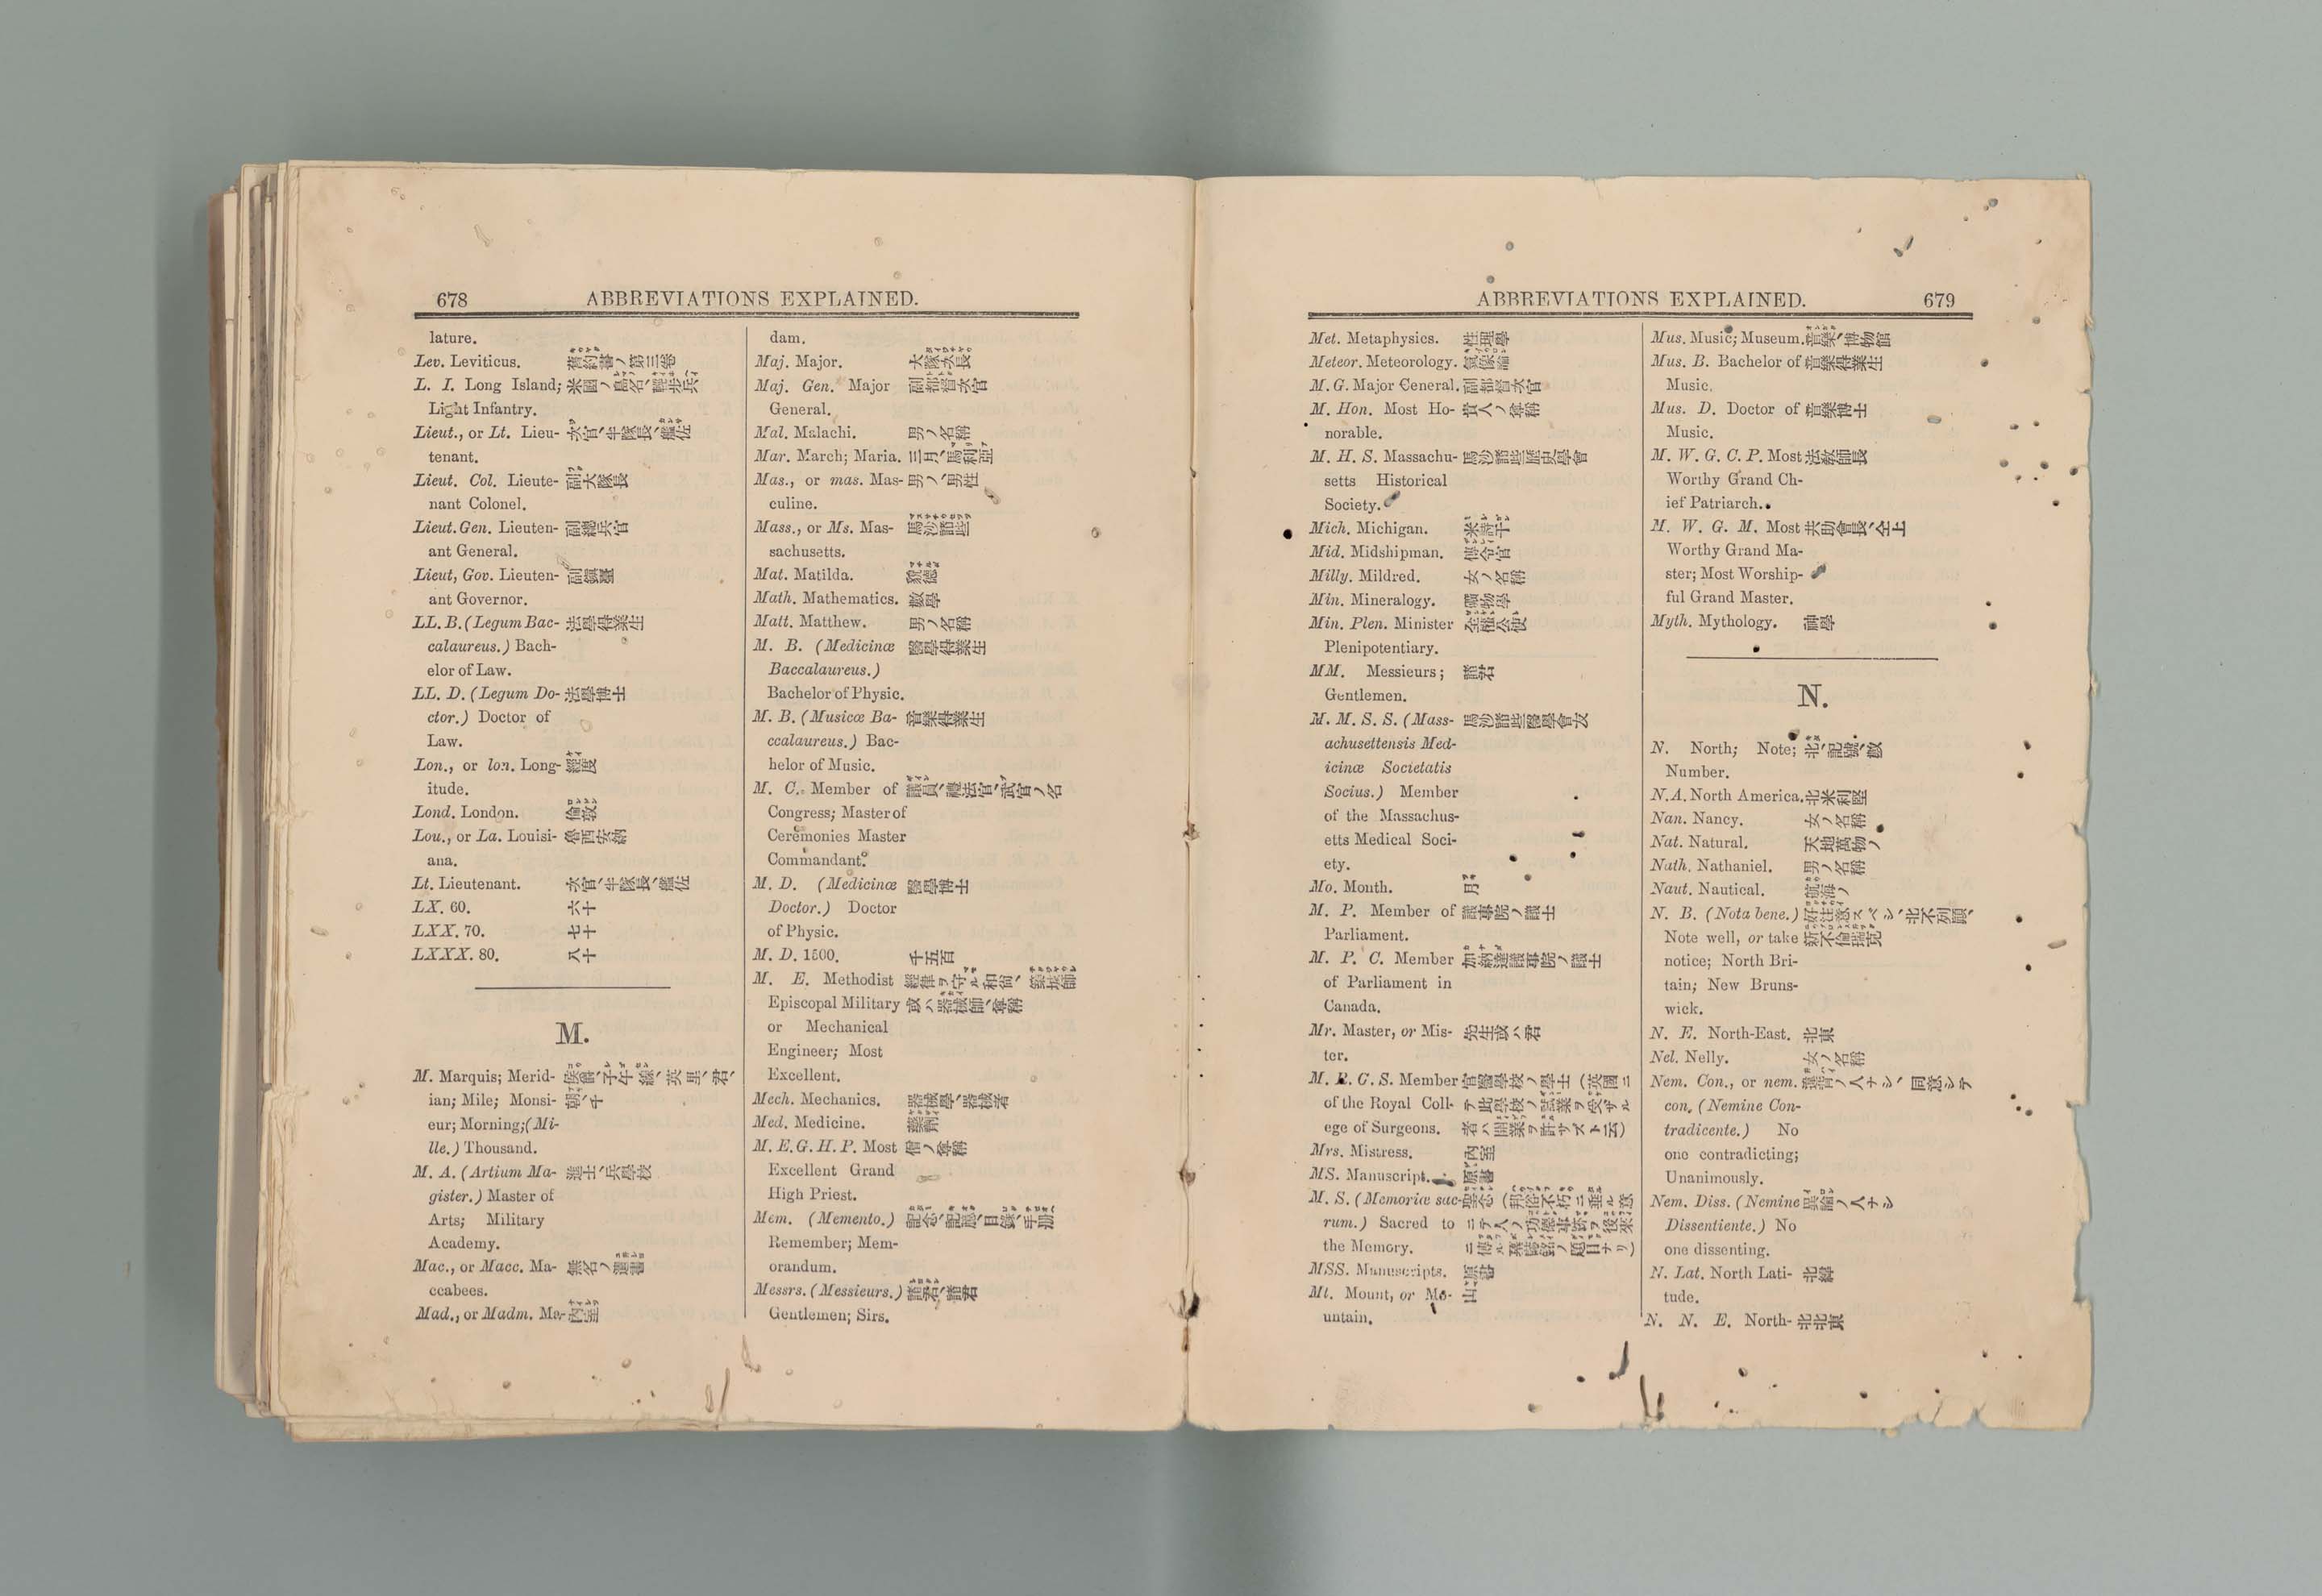 678 ABBREVIATIONS EXPLAINED.
lature.
Lev. Leviticus. 舊約書ノ第三卷
L. I. Long Island; 米國ノ島名、輕步兵
Light Infantry.
Lieut., or Lt. Lieu- 次官、半隊長、艦佐
tenant.
Lieut. Col. Lieute- 副大隊長
nant Colonel.
Lieut. Gen. Lieuten- 副總兵官
ant General.
Lieut, Gov. Lieuten- 副鎭臺
ant Governor.
LL. B. (Legum Bac- 法學得業生
calaureus.) Bach-
elor of Law.
LL. D. (Legum Do- 法學博士
ctor.) Doctor of
Law.
Lon., or lon. Long- 經度
itude.
Lond. London. 倫敦
Lou., or La. Louisi- 魯西安納
ana.
Lt. Lieutenant. 次官、半隊長、艦佐
LX. 60. 六十
LXX. 70. 七十
LXXX. 80. 八十
M.
M. Marquis; Merid- 侯爵、子午線、英里、君、
ian; Mile; Monsi- 朝、千
eur; Morning; (Mi-
lle.) Thousand.
M. A. (Artium Ma- 進士、兵學校
gister.) Master of
Arts; Military
Academy.
Mac., or Macc. Ma- 無名ノ遺書
ccabees.
Mad., or Madm. Ma- 內室
dam.
Maj. Major. 大隊次長
Maj. Gen. Major 副都督次官
General.
Mal. Malachi. 男ノ名稱
Mar. March; Maria. 三月、馬利亞
Mas., or mas. Mas- 男ノ、男性
culine.
Mass., or Ms. Mas- 馬沙諸些
sachusetts.
Mat. Matilda. 貌德
Math. Mathematics. 數學
Matt. Matthew. 男ノ名稱
M. B. (Medicinœ 醫學得業生
Baccalaureus.)
Bachelor of Physic.
M. B. (Musicœ Ba- 音樂得業生
ccalaureus.) Bac-
helor of Music.
M. C. Member of 議員、禮法官、武官ノ名
Congress; Master of
Ceremonies Master
Commandant.
M. D. (Medicinœ 醫學博士
Doctor.) Doctor
of Physic.
M. D. 1500. 千五百
M. E. Methodist 經律ヲ守ル和尙、築堡師
Episcopal Military 或ハ器械師、尊稱
or Mechanical
Engineer; Most
Excellent.
Mech. Mechanics. 器械學、器械者
Med. Medicine. 藥劑
M. E. G. H. P. Most 僧ノ尊稱
Excellent Grand
High Priest.
Mem. (Memento.) 記念、記憶、目錄、手册
Remember; Mem-
orandum.
Messrs. (Messieurs.) 諸君、諸君
Gentlemen; Sirs.
ABBREVIATIONS EXPLAINED. 679
Met. Metaphysics. 性理學
Meteor. Meteorology. 氣像論
M. G. Major General. 副都督次官
M. Hon. Most Ho- 貴人ノ尊稱
norable.
M. H. S. Massachu- 馬沙諸些歷史學會
setts Historical
Society.
Mich. Michigan. 米詩干
Mid. Midshipman. 傳令官
Milly. Mildred. 女ノ名稱
Min. Mineralogy. 礦物學
Min. Plen. Minister 全權公使
Plenipotentiary.
MM. Messieurs; 諸君
Gentlemen.
M. M. S. S. (Mass- 馬沙諸些醫學會友
achusettensis Med-
icinœ Societatis
Socius.) Member
of the Massachus-
etts Medical Soci-
ety.
Mo. Month. 月
M. P. Member of 議事院ノ議士
Parliament.
M. P. C. Member 加納達議事院ノ議士
of Parliament in
Canada.
Mr. Master, or Mis- 先生或ハ君
ter.
M. R. C. S. Member 官醫學校ノ學士 (英國ニ
of the Royal Coll- テ此學校ノ試業ヲ受ザル
ege of Surgeons. 者ハ開業ヲ許サズト云)
Mrs. Mistress. 內室
MS. Manuscript. 原書
M. S. (Memoriœ sac- 聖念 (邦俗不朽ニ垂ル意
rum.) Sacred to ニテ人ノ功德事跡ヲ後來
the Memory. ニ傳ル墓誌銘ノ題目ナリ)
MSS. Manuscripts. 原書
Mt. Mount, or Mo- 山
untain.
Mus. Music; Museum. 音樂、博物館
Mus. B. Bachelor of 音樂得業生
Music.
Mus. D. Doctor of 音樂博士
Music.
M. W. G. C. P. Most 法敎師長
Worthy Grand Ch-
ief Patriarch.
M. W. G. M. Most 共助會長、仝上
Worthy Grand Ma-
ster; Most Worship-
ful Grand Master.
Myth. Mythology. 神學
N.
N. North; Note; 北、記號、數
Number.
N. A. North America. 北米利堅
Nan. Nancy. 女ノ名稱
Nat. Natural. 天地萬物ノ
Nath. Nathaniel. 男ノ名稱
Naut. Nautical. 航海ノ
N. B. (Nota bene.) 好注意スベシ、北不列顚、
Note well, or take 新不倫瑞克
notice; North Bri-
tain; New Bruns-
wick.
N. E. North-East. 北東
Nel. Nelly. 女ノ名稱
Nem. Con., or nem. ノ人ナシ、同意シテ
con. (Nemine Con-
tradicente.) No
one contradicting;
Unanimously.
Nem. Diss. (Nemine 異論ノ人ナシ
Dissentiente.) No
one dissenting.
N. Lat. North Lati- 北緯
tude.
N. N. E. North- 北北東